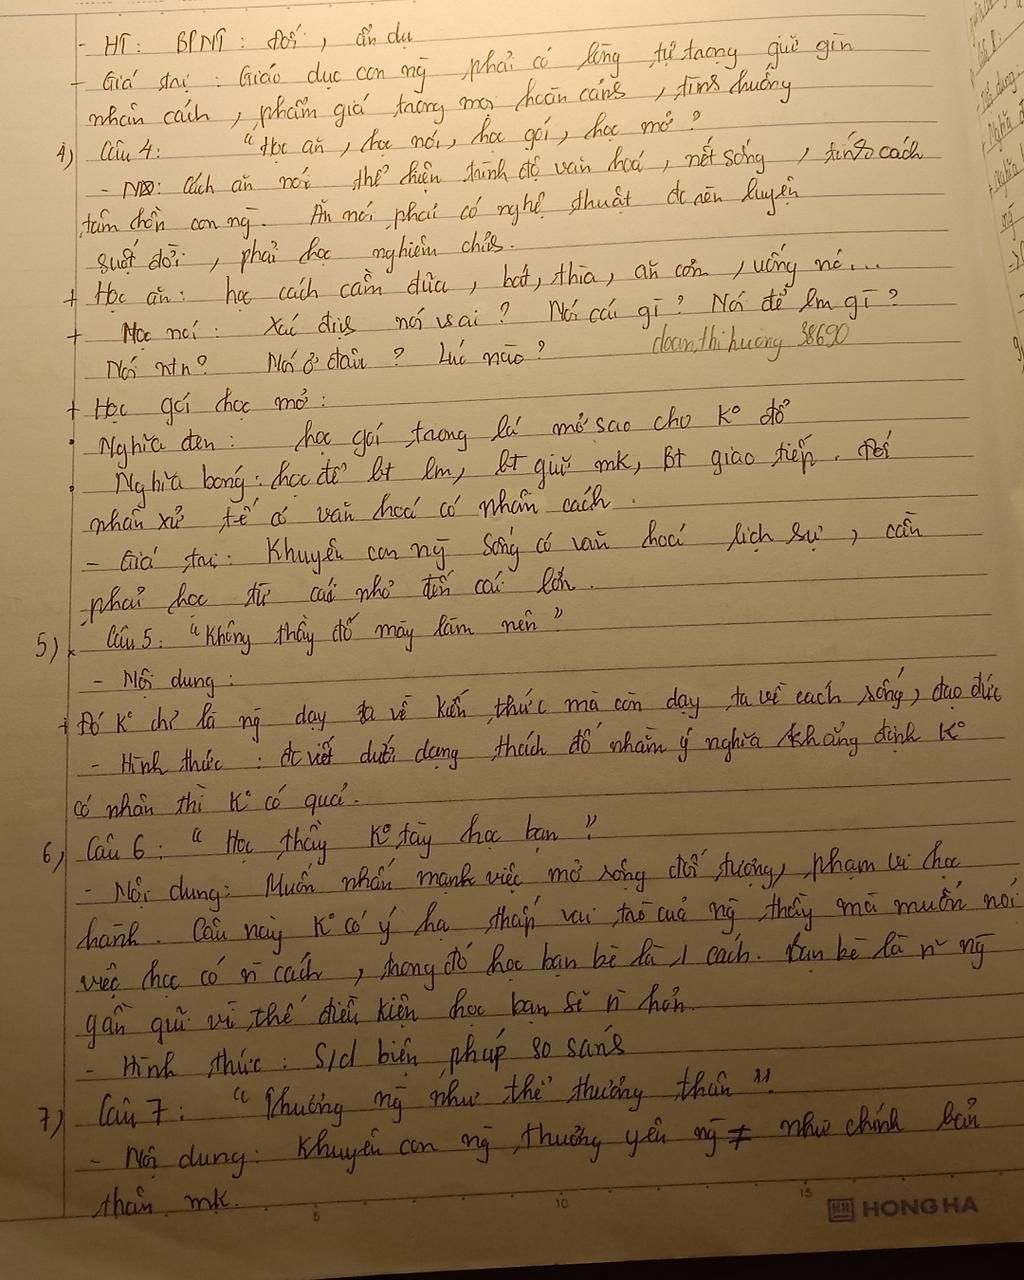 - HT: BPNT: đối, ẩn dụ
- Giá trị: Giáo dục con ng̃ phải có lòng tự trọng giữ gìn
nhân cách, phẩm giá trong mọi hoàn cảnh, tình huống
4) Câu 4: "Học ăn, học nói, học gói, học mở"
- ND: Cách ăn nói thể hiện trình độ văn hoá, nết sống, tính cách
tâm hồn con ng̃. Ăn nói phải có nghệ thuật đc rèn luyện
suốt đời, phải học nghiêm chỉnh.
+ Học ăn: học cách cầm đũa, bát, thìa, ăn cơm, uống nc...
+ Học nói: Xác định nói vs ai? Nói cái gì? Nói để lm gì?
Nói ntn? Nói ở đâu? Lúc nào? doan,thihuong 38690
+ Học gói học mở:
• Nghĩa đen: học gói trong lá mở sao cho K° đổ
• Nghĩa bóng: học để bt lm, bt giữ mk, Bt giao tiếp. đối
nhân xử thế có văn hoá có nhân cách.
- Giá trị: Khuyên con ng̃ sống có văn hoá lịch sự, cần
phải học từ cái nhỏ đến cái lớn.
5) Câu 5: "Không thầy đố mày làm nên"
- Nội dung:
+ Đó K° chỉ là ng̃ dạy ta về kiến thức mà còn dạy ta về cách sống, đạo đức
- Hình thức: đc viết dưới dạng thách đố nhằm ý nghĩa khẳng định K°
có nhân thì K° có quả.
6) Câu 6: "Học thầy K° tày học bạn"
- Nội dung: Muốn nhấn mạnh việc mở rộng đối tượng, phạm vi học
hành. Câu này K° có ý hạ thấp vai trò của ng̃ thầy mà muốn nói
việc học có n̄ cách, trong đó học bạn bè là 1 cách. bạn bè là n~ ng̃
gần gũi vì thế điều kiện học bạn sẽ n̄ hơn.
- Hình thức: S/d biện pháp so sánh
7) Câu 7: "Thương ng̃ như thể thương thân".
- Nội dung: Khuyên con ng̃ thương yêu ng̃ ≠ như chính bản
thân mk.
5 10 15
HH HONG HA